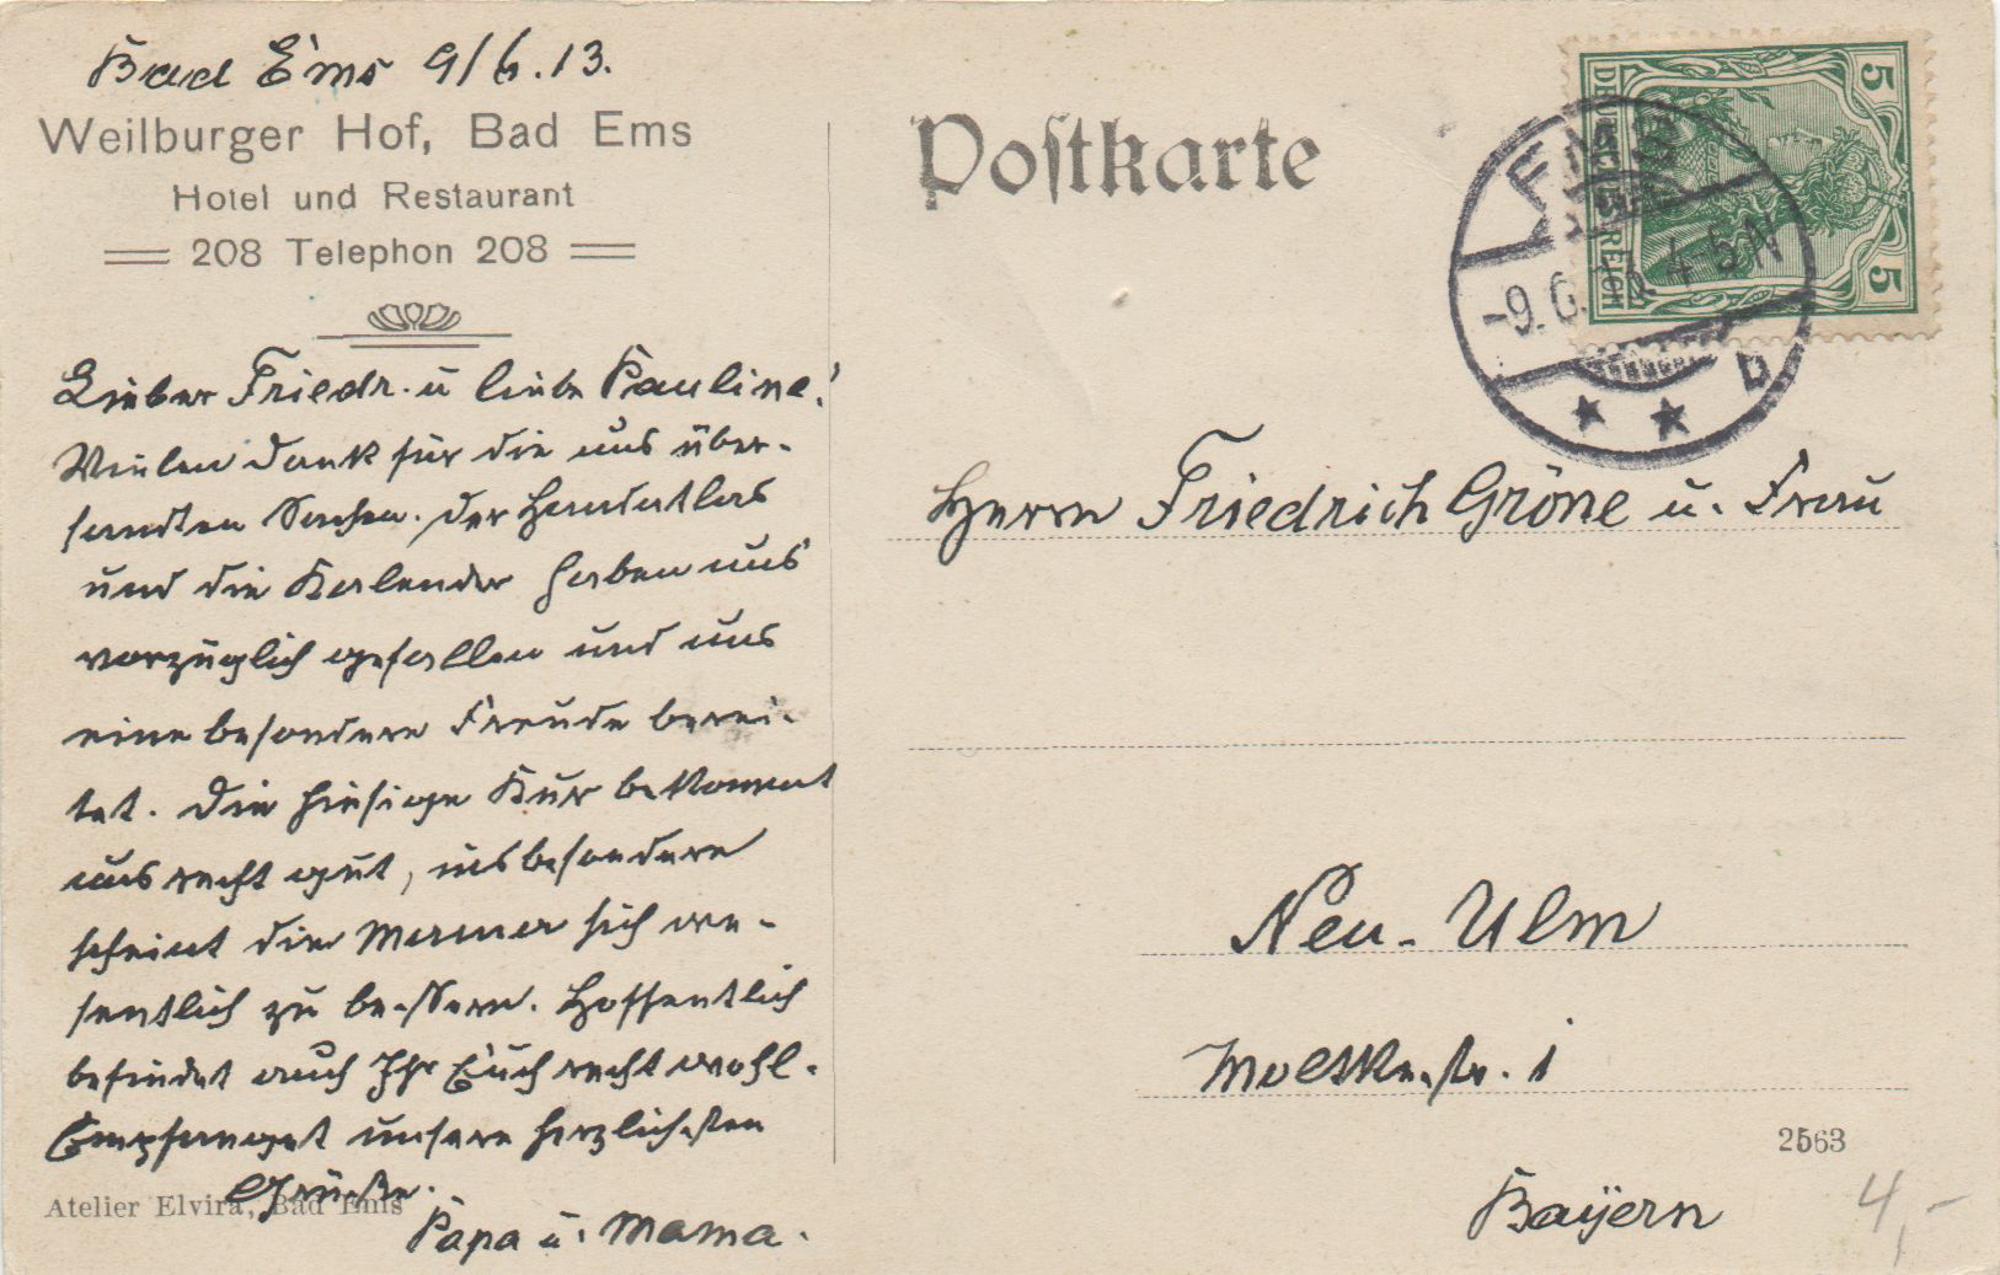 Bad Ems 9/6.13.
Weilburger Hof, Bad Ems
Hotel und Restaurant
208 Telephon 208
Lieber Friedr. u liebe Pauline!
Vielen Dank für die uns über-
sandten Sachen. Der Handatlas
und die Kalender haben uns
vorzüglich gefallen und uns
eine besondere Freude berei-
tet. Die hiesige Kur bekommt
uns recht gut, insbesondere
scheint die Mama sich we-
sentlich zu bessern. Hoffentlich
befindet auch Ihr Euch recht wohl.
Empfanget unsere herzlichsten
Grüße.
Papa u. Mama.
Atelier Elvira, Bad Ems
Postkarte
DEUTSCHES REICH
5
5
EMS
-9.6.13. 4-5 N
b
Herrn Friedrich Gröne u. Frau
Neu-Ulm
Moltkestr. 1
Bayern
2563
4,-